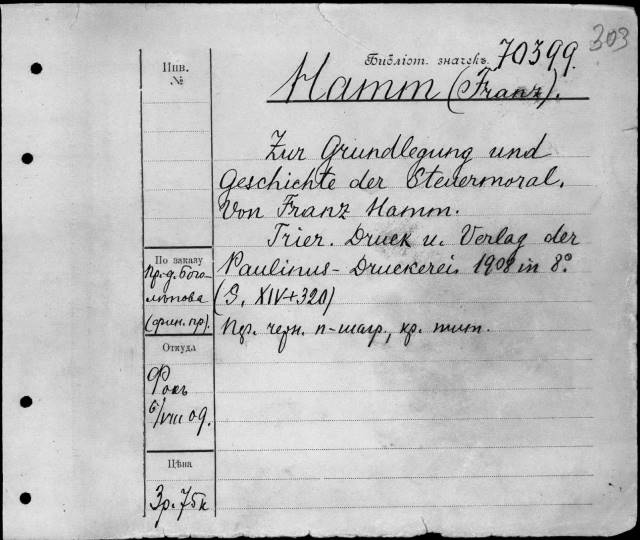 303
Библіот. значекъ 70399.
Инв.
№
Hamm (Franz).
Zur Grundlegung und
Geschichte der Steuermoral.
Von Franz Hamm.
Trier. Druck u. Verlag der
Paulinus-Druckerei. 1908 in 8°
(S. XIV+320)
По заказу
пр-д. Бого-
лѣпова
(фин. пр).
черн. п-шагр., кр. тит.
Откуда
Фокъ
6/VIII 09.
Цѣна
3р. 75к